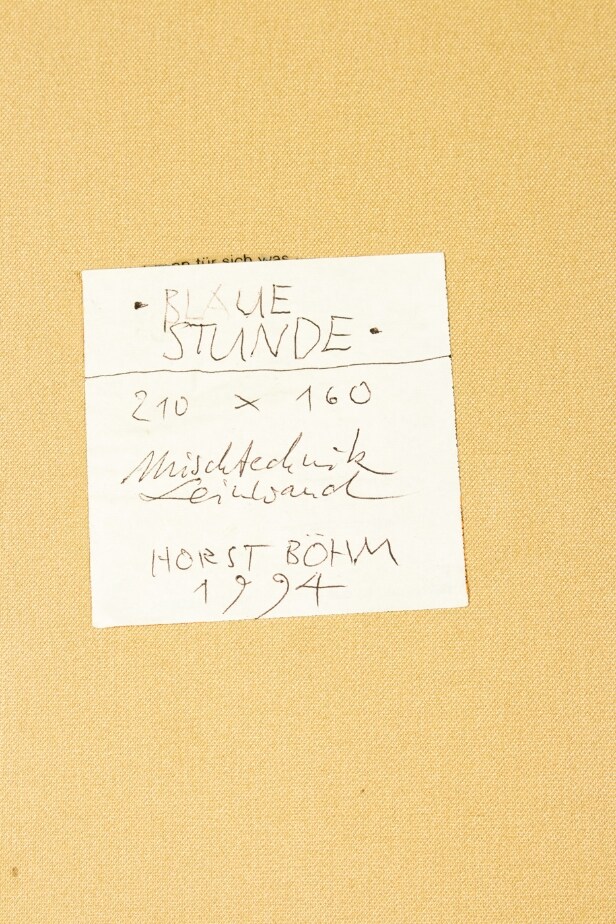 für sich was
• BLAUE
STUNDE •
210 x 160
Mischtechnik
Leinwand
HORST BÖHM
1994